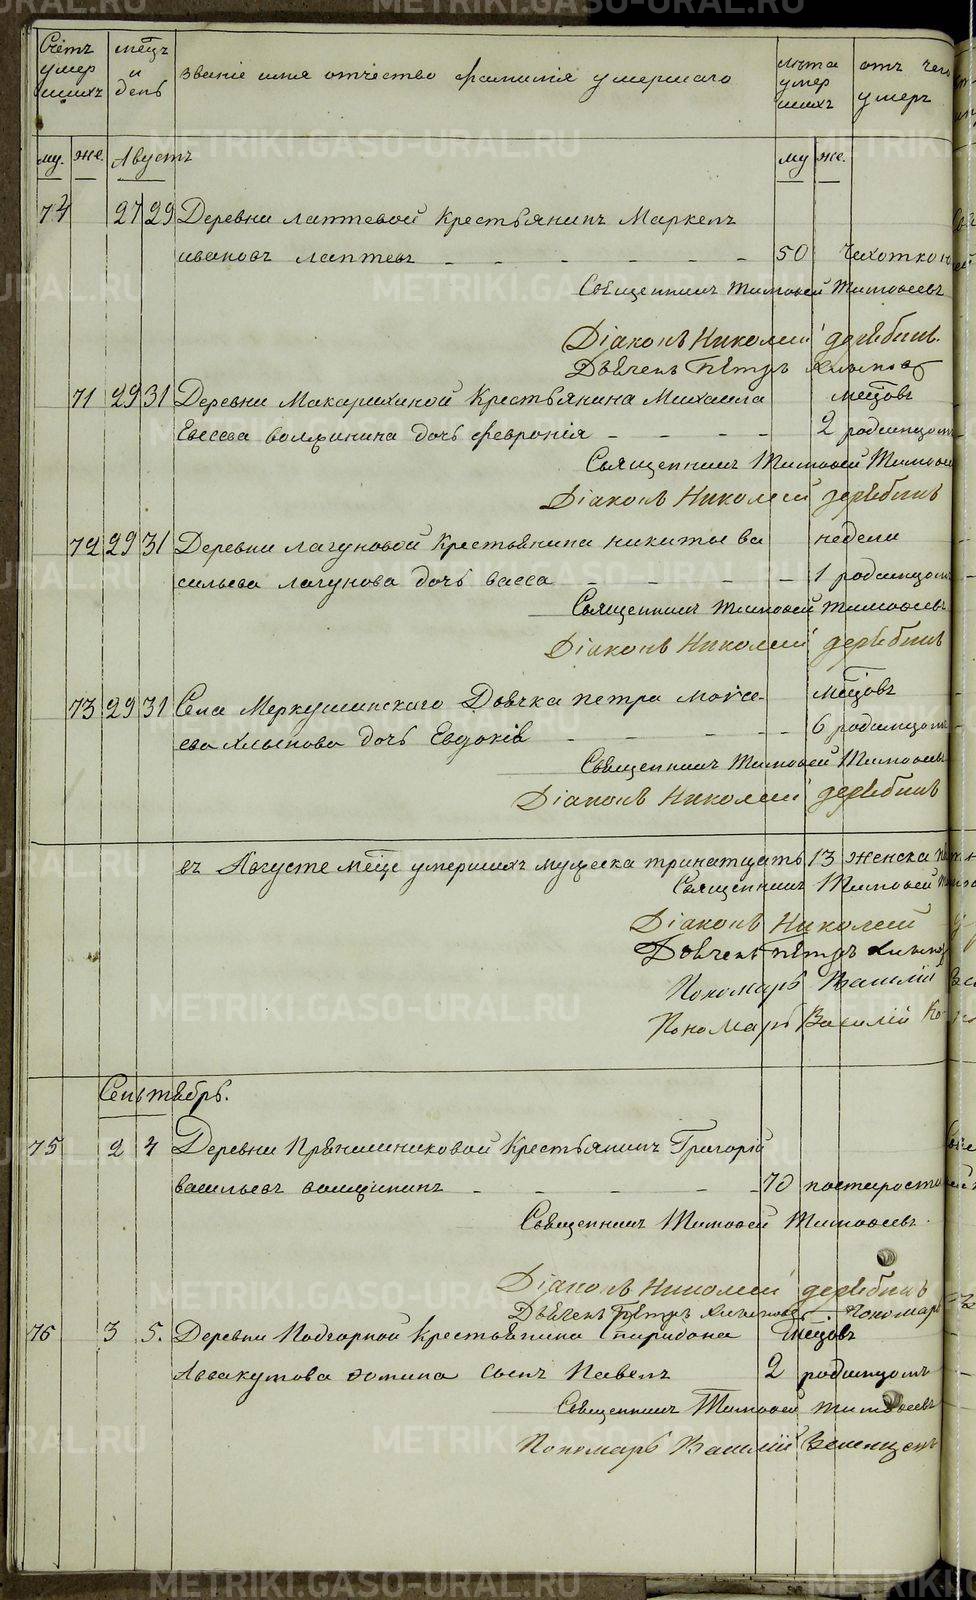 METRIKI.GASO-URAL.RU
Счетъ умер шихъ
мѣцъ и день
званіе имя отчество фамилія умершаго
лѣта умер шихъ
отъ чего умеръ
му. же. Августъ му же.
74 27 29 Деревни лаптевой Крестьянинъ Маркелъ
ивановъ лаптевъ 50 Чахоткою
Священникъ Тимофей Тимофеевъ
Діаконъ Николай дерябинъ.
Дьячекъ Пётръ Хлыновъ
71 29 31 Деревни Макарихиной Крестьянина Михаила мѣцовъ
Евсеева вольхина дочь февронія 2 родимцомъ
Священникъ Тимофей Тимофеевъ
Діаконъ Николай дерябинъ
72 29 31 Деревни лагуновой Крестьянина никиты ва недели
сильева лагунова дочь васса 1 родимцомъ
Священникъ Тимофей Тимофеевъ
Діаконъ Николай дерябинъ
73 29 31 Села Меркушинскаго Дьячка петра мойсе- мѣцовъ
ева хлынова дочь Евдокія 6 родимцомъ
Священникъ Тимофей Тимофеевъ
Діаконъ Николай дерябинъ
въ Августе мѣцѣ умершихъ мужеска тринатцать 13 женска
Священникъ Тимофей
Діаконъ Николай
Дьячекъ Пётръ Хлынов
Пономарь Василій
Пономарь Василій Ко
Сентябрь.
75 2 4 Деревни Прянишниковой Крестьянинъ Григорій
васильевъ 70 постарости
Священникъ Тимофей Тимофеевъ.
Діаконъ Николай дерябинъ
Дьячекъ Пётръ Хлыновъ Пономарь
76 3 5. Деревни Подгорной Крестьянина спиридона мѣцовъ
Аввакумова фомина сынъ Павелъ 2 родимцомъ
Священникъ Тимофей Тимофеевъ
Пономарь Василій